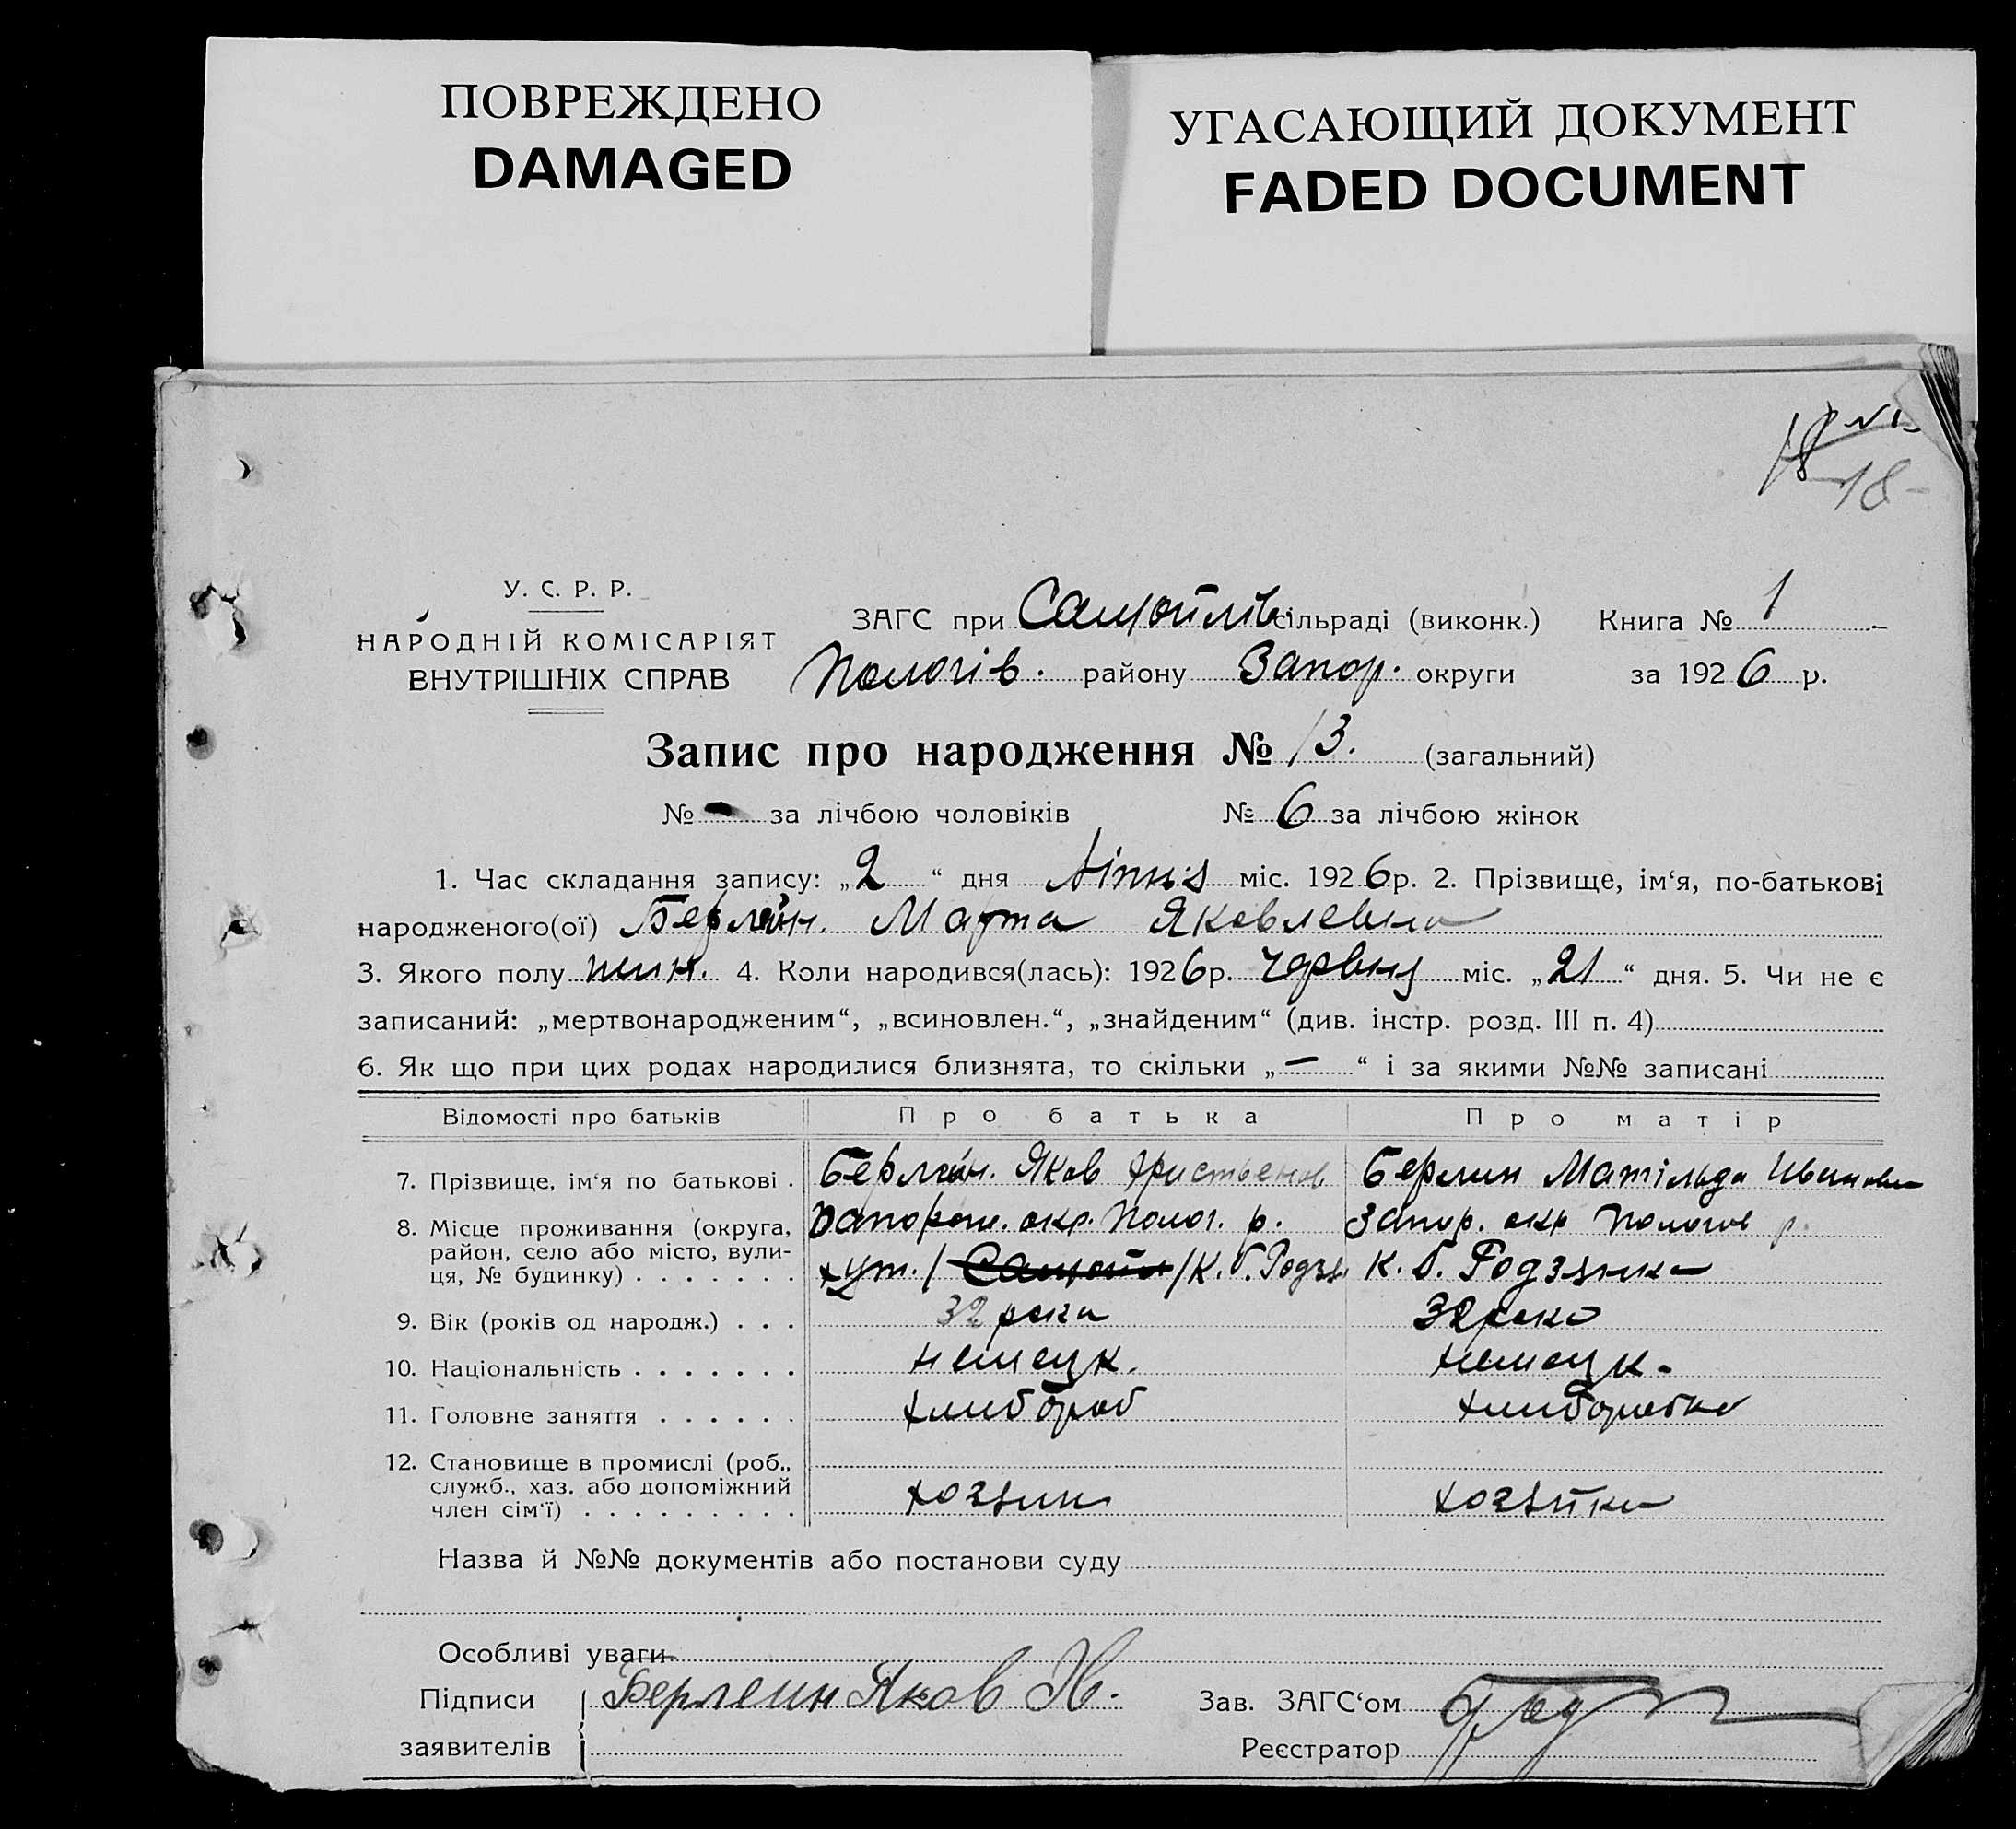 ПОВРЕЖДЕНО
DAMAGED
УГАСАЮЩИЙ ДОКУМЕНТ
FADED DOCUMENT
18
У. С. Р. Р.
НАРОДНІЙ КОМІСАРІЯТ
ВНУТРІШНІХ СПРАВ
ЗАГС при Самойлів сільраді (виконк.) Книга № 1
Пологів. району Запор. округи за 1926 р.
Запис про народження № 13. (загальний)
№ - за лічбою чоловіків № 6 за лічбою жінок
1. Час складання запису: „2“ дня Липня міс. 1926р. 2. Прізвище, ім‘я, по-батькові
народженого(ої) Берлейн. Марта Яковлевна
3. Якого полу жин. 4. Коли народився(лась): 1926р. червня міс. „21“ дня. 5. Чи не є
записаний: „мертвонародженим“, „всиновлен.“, „знайденим“ (див. інстр. розд. III п. 4)
6. Як що при цих родах народилися близнята, то скільки „-“ і за якими №№ записані
Відомості про батьків Про батька Про матір
7. Прізвище, ім‘я по батькові . Яков Христьенов Берлин Матільда Иванов
8. Місце проживання (округа, район, село або місто, вулиця, № будинку) . . . . . . . Запорож. окр. Полог. р. Запор. окр Пологов р.
хут. / / К. б. Родзя К. б. Родзянка
9. Вік (років од народж.) . . . 32 роки 32 роки
10. Національність . . . . . . . немецк. немецк.
11. Головне заняття . . . . . . хлибороб хлиборобка
12. Становище в промислі (роб., служб., хаз. або допоміжний член сім‘ї) . . . . . . . . . хозяин хозяйка
Назва й №№ документів або постанови суду
Особливі уваги
Підписи заявителів Берлеин Яков Х.
Зав. ЗАГС‘ом
Реєстратор